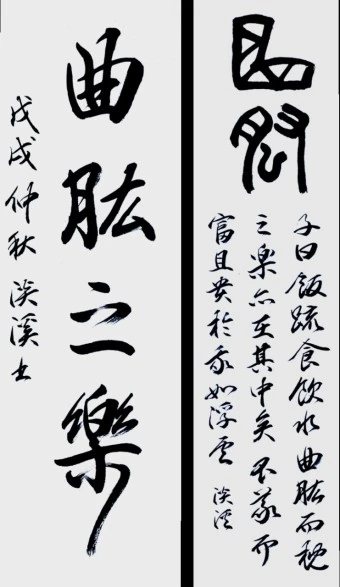 子曰飯疏食飲水曲肱而枕
之樂亦在其中矣不義而
富且貴於我如浮雲 淡溪
曲肱之樂
戊戌仲秋 淡溪书